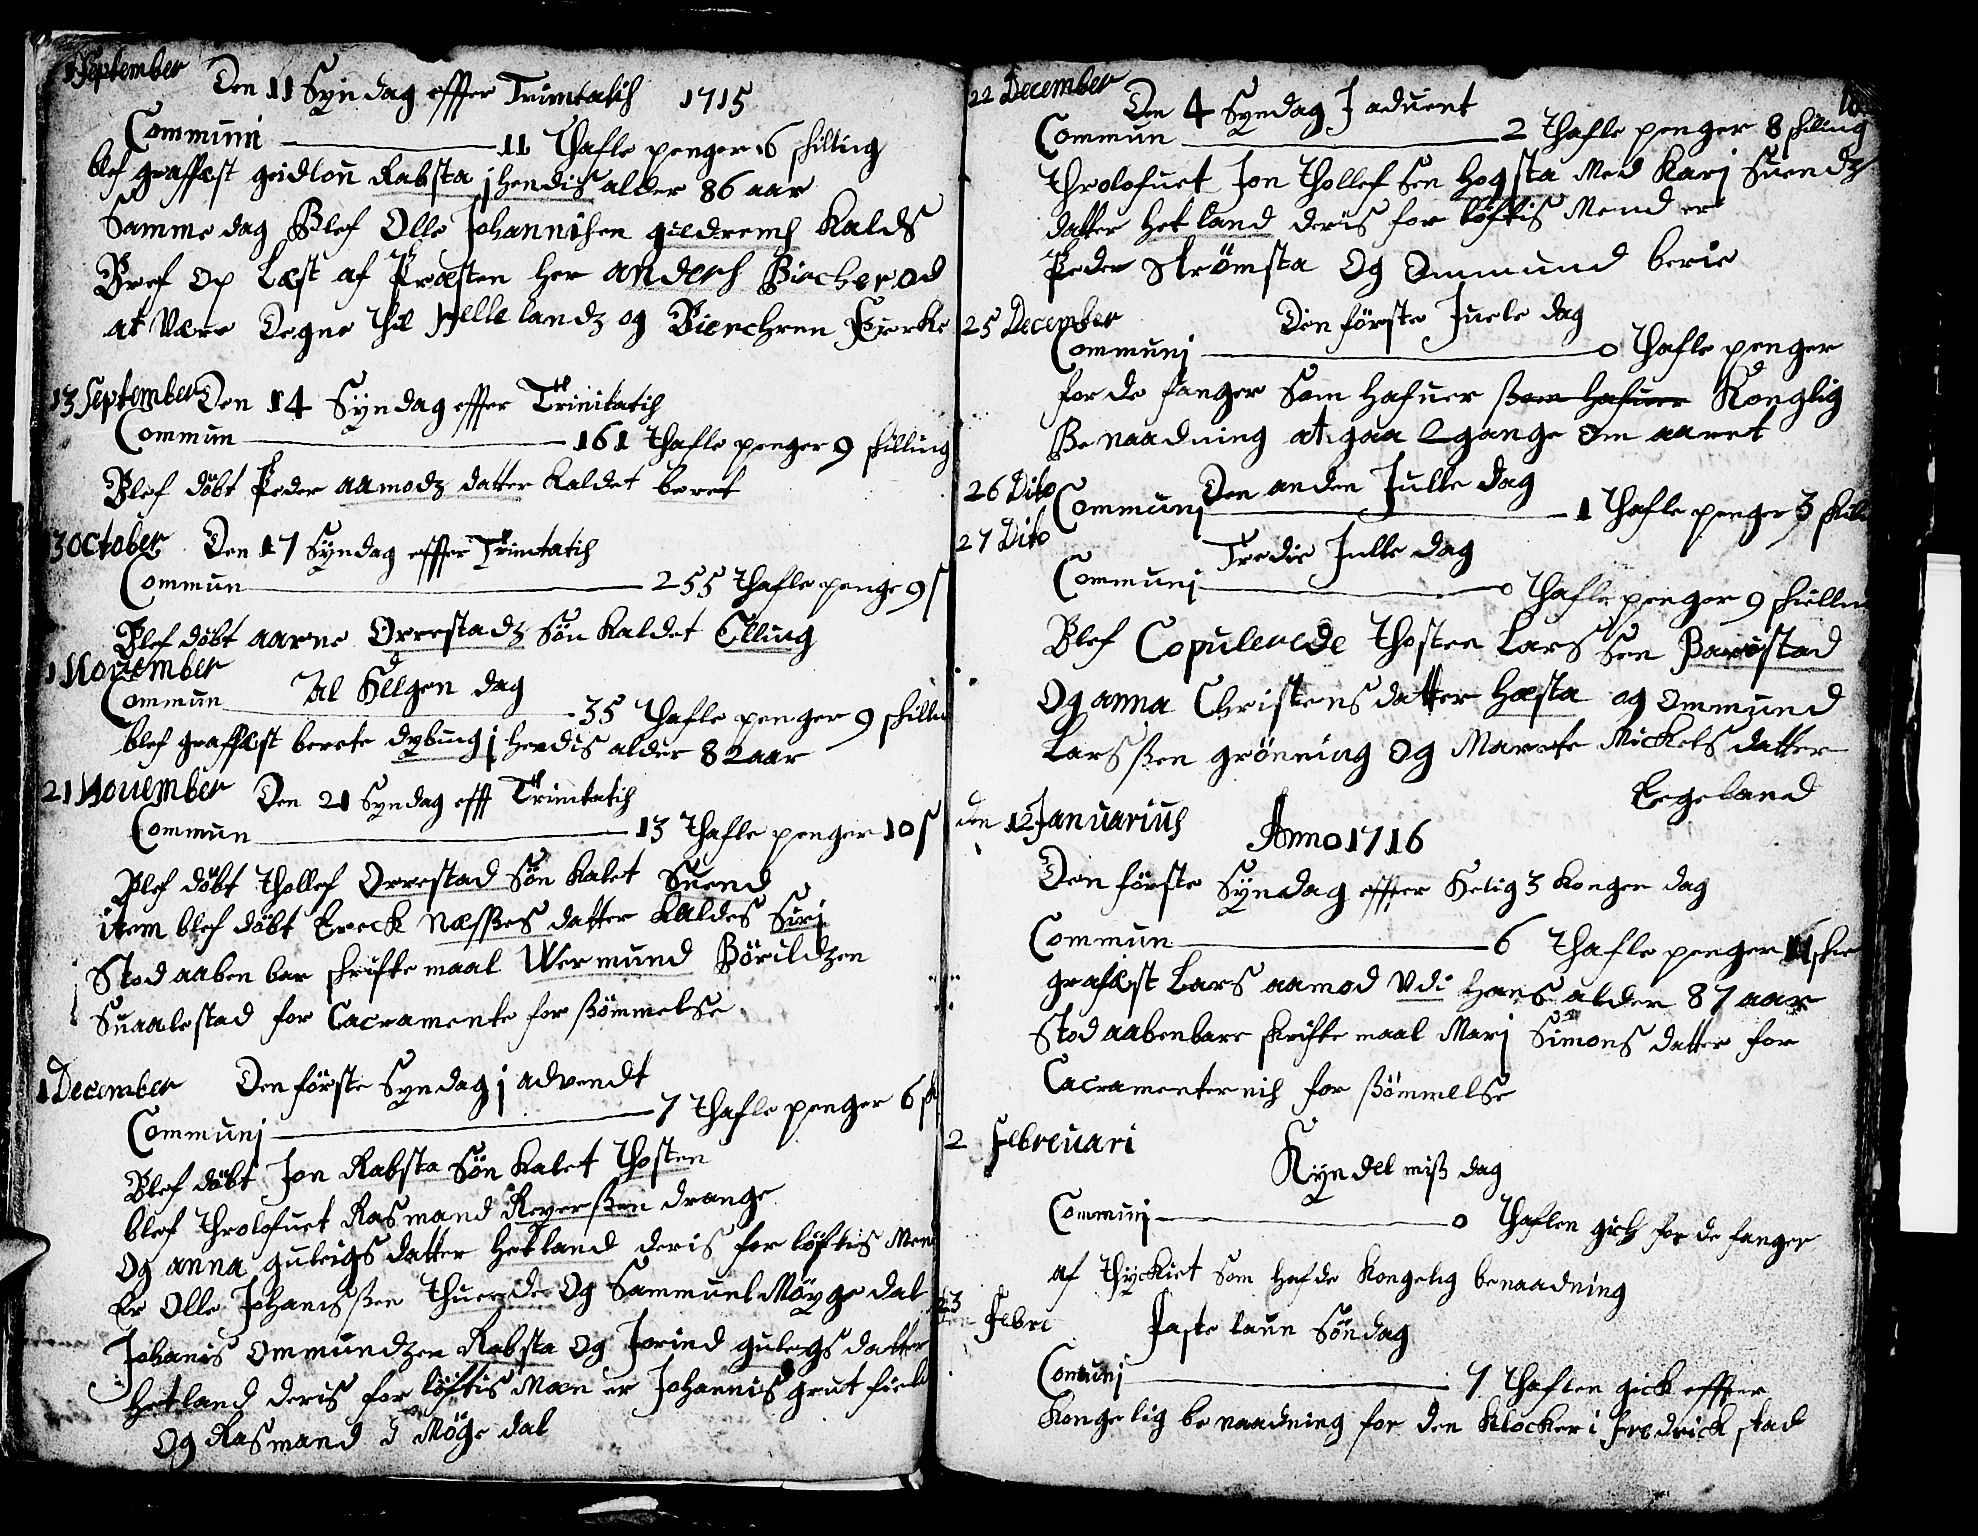 1 September Den 11 Syndag effter Trinitatis 1715
Communi 11 Thafle penger 6 skilling
blef graffæst geidlou Rabsta j hendis alder 86 aar
Samme dag Blef Olle Johannisen gieldrems Kalds
Bref Op Læst af Præsten her anders Bircherod
at Være Degne thil Hellelandz og Bienchren Kierke
13 September Den 14 Syndag effter Trinitatis
Commun 161 Thafle penger 9 skilling
Blef döbt Peder aamodz datter Kaldet beret
3 October Den 17 Syndag effter Trinitatis
Commun 255 Thafle penge 9 s
Blef döbt aarne Orrestadz Sön Kaldet Elling
1 November
Commun Al Helgen dag 35 Thafle penger 9 skilling
blef graffæst berete dybing j hendis alder 82 aar
21 November Den 21 Syndag efft Trinitatis
Commun 13 Thafle penger 10 s
Blef döbt Thollef Orrestad Sön Kalet Suend
item blef döbt Ereck Næsses datter Kaldes Siri
Stod aaben bar skrifte maal Wermund Börildzen
Suaalestad for Cacramente for sömmelse
1 December Den förste Syndag j advendt
Communj 7 Thafle penger 6 sk
Blef döbt Jon Rabsta Sön Kalet Thosten
blef Throlofuet Rasmand Reyerssen drange
Og anna guleigs datter Hetland deris for löftis Men
Er Olle Johanissen Thuende Og Sammuel Möyge dal
Johanis Ommundzen Rabsta Og Jorind gulegs datter
Hetland deris for löftis Men er Johannis grut
Og Rasmand i Möge dal
22 December Den 4 Syndag J aduent
Commun 2 Thafle penger 8 skiling
Throlofuet Jon Thollefsen Hogsta Med Karj Suendz
datter Hetland deris for löftis Mend er
Peder Strömsta Og Ommund berie
25 December Den förste Juele dag
Communj 0 Thafle penger
for de fanger Som Hafuer som Hafuer Konglig
Benaadning at gaa 2 gange Om aaret
26 Dito Den anden Julle dag
Communj 1 Thafle penger 3 skill
27 Dito Tredie Julle dag
Communj 0 Thafle penger 9 skielling
Blef Copulerede Thosten Lars Sen Barrstad
Og anna Christens datter Hæsta og Ommund
Lars ssen grönning Og Marete Mickels datter
Eegeland
den 12 Januarius Anno 1716
Den förste Syndag effter Helig 3 Kongen dag
Commun 6 Thafle penger 11 skie
grafæst Lars aamod Vdi Hans alder 87 aar
Stod aabenbare skrifte maal Marj Simons datter for
Cacramenternis for sömmelse
2 Februari Kyndel miss dag
Communj 0 Thaflen gich for de fanger
af Thyckiet som Hafde Kongelig benaadning
23 Febre Faste laun Söndag
Comunj 7 Thaflen gick effter
Kongelig benaadning for den Klocker i Fredrick stad